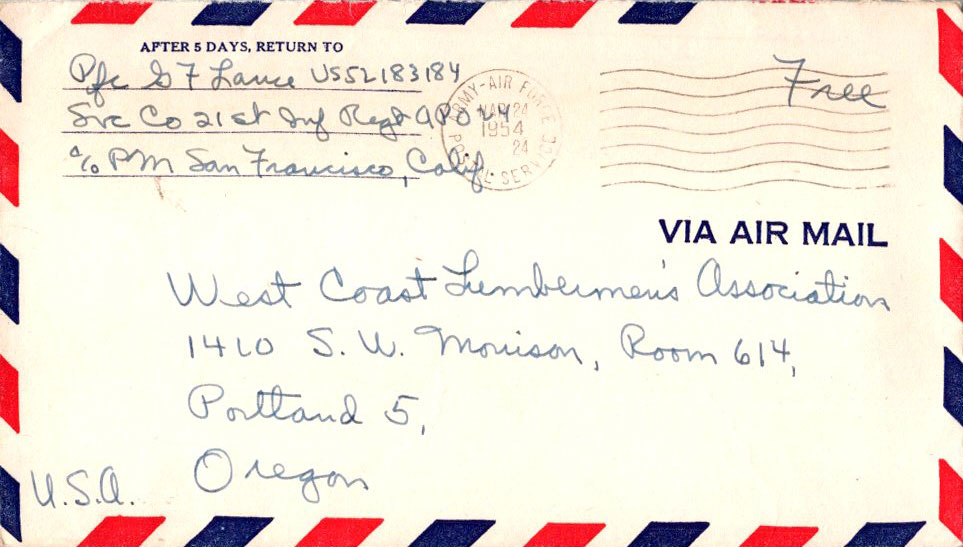 AFTER 5 DAYS, RETURN TO
Pfc G F Lance US52183184
Svc Co 21st Inf Regt APO 24
c/o PM San Francisco, Calif.
ARMY-AIR FORCE
MAR 24
1954
24
POSTAL SERVICE
Free
VIA AIR MAIL
West Coast Lumbermen's Association
1410 S. W. Morrison, Room 614,
Portland 5,
Oregon
U.S.A.